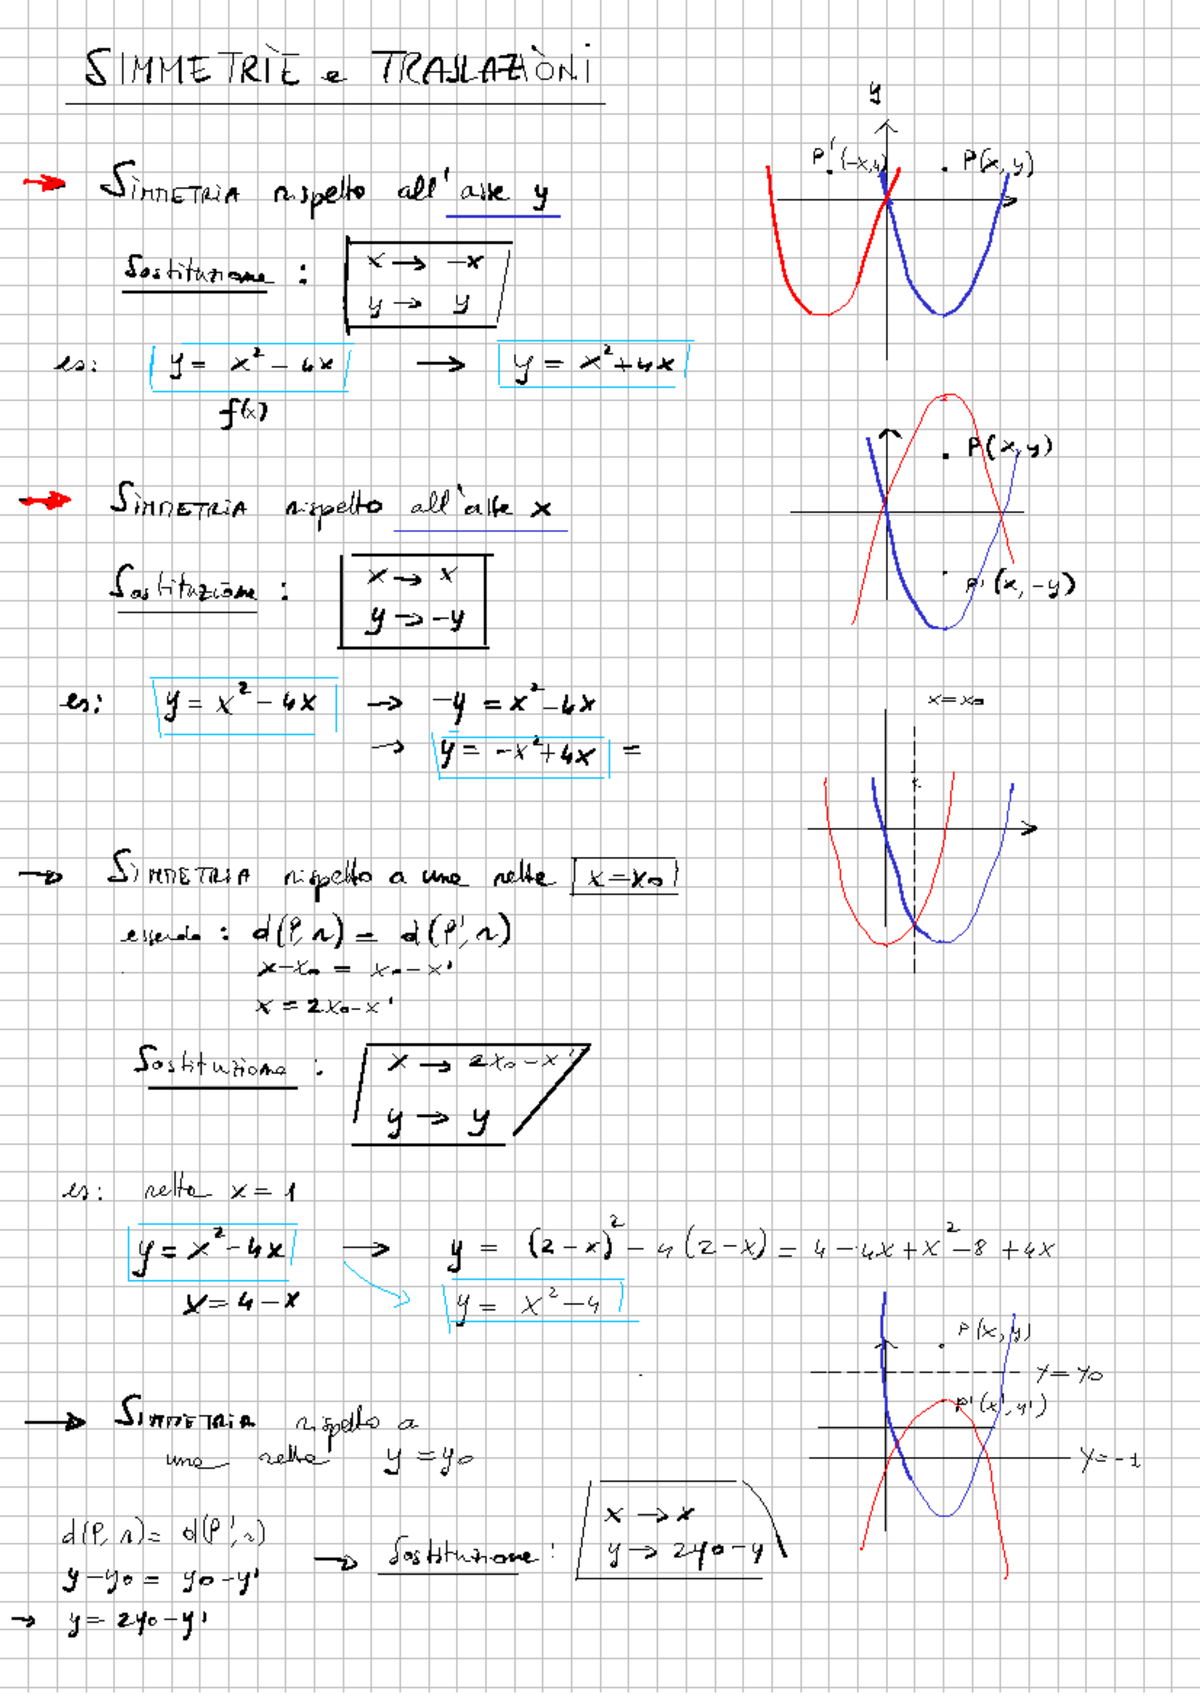 SIMMETRIE e TRASLAZIONI
y
→ SIMMETRIA rispetto all'asse y
P'(-x,y)
P(x,y)
Sostituzione :
x → -x
y → y
es: y = x² - 4x → y = x² + 4x
f(x)
P(x,y)
→ SIMMETRIA rispetto all'asse x
Sostituzione :
x → x
y → -y
P'(x,-y)
es: y = x² - 4x → -y = x² - 4x
→ y = -x² + 4x =
x = x₀
→ SIMMETRIA rispetto a una retta x = x₀
essendo : d(P,r) = d(P',r)
x - x₀ = x₀ - x'
x = 2x₀ - x'
Sostituzione :
x → 2x₀ - x'
y → y
es: retta x = 1
y = x² - 4x → y = (2-x)² - 4(2-x) = 4 - 4x + x² - 8 + 4x
x = 4 - x
y = x² - 4
P(x,y)
y = y₀
P'(x',y')
y = -1
→ SIMMETRIA rispetto a
una retta y = y₀
d(P,r) = d(P',r)
y - y₀ = y₀ - y'
→ y = 2y₀ - y'
→ Sostituzione :
x → x
y → 2y₀ - y